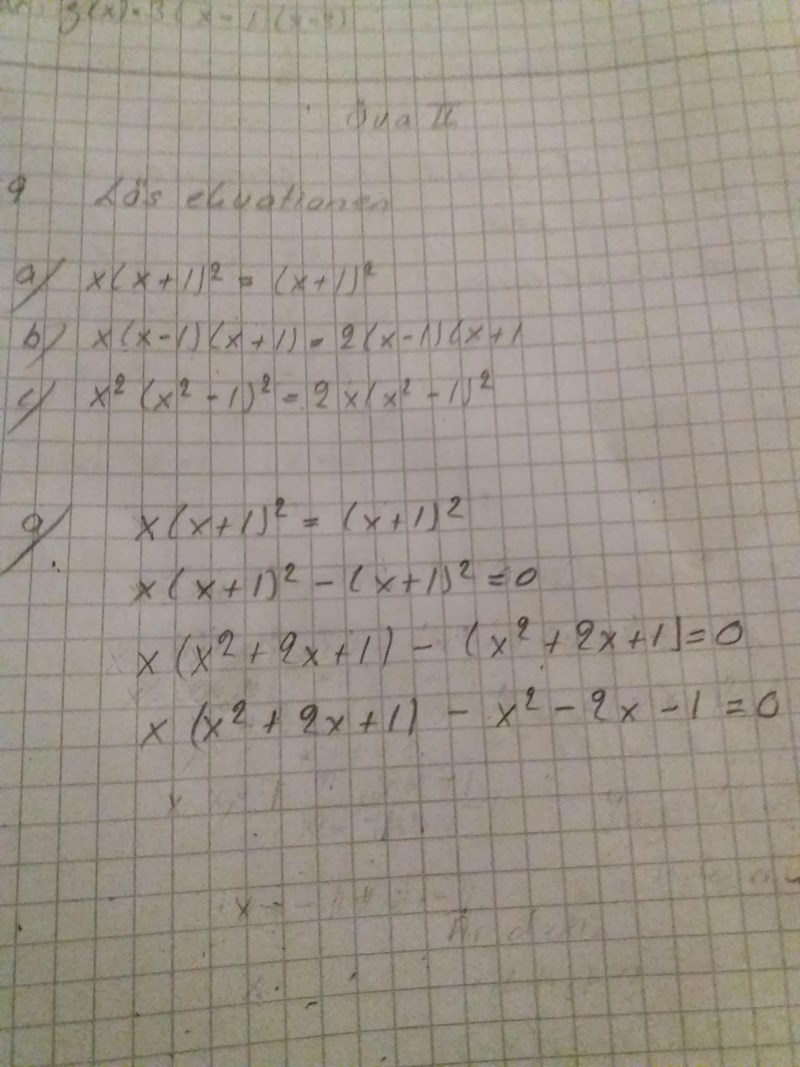 g(x) = 3(x-1)(x-4)
Öva II
9 Lös ekvationen
a) x(x+1)² = (x+1)²
b) x(x-1)(x+1) = 2(x-1)(x+1
c) x²(x²-1)² = 2x(x²-1)²
a) x(x+1)² = (x+1)²
x(x+1)² - (x+1)² = 0
x(x²+2x+1) - (x²+2x+1) = 0
x(x²+2x+1) - x² - 2x - 1 = 0